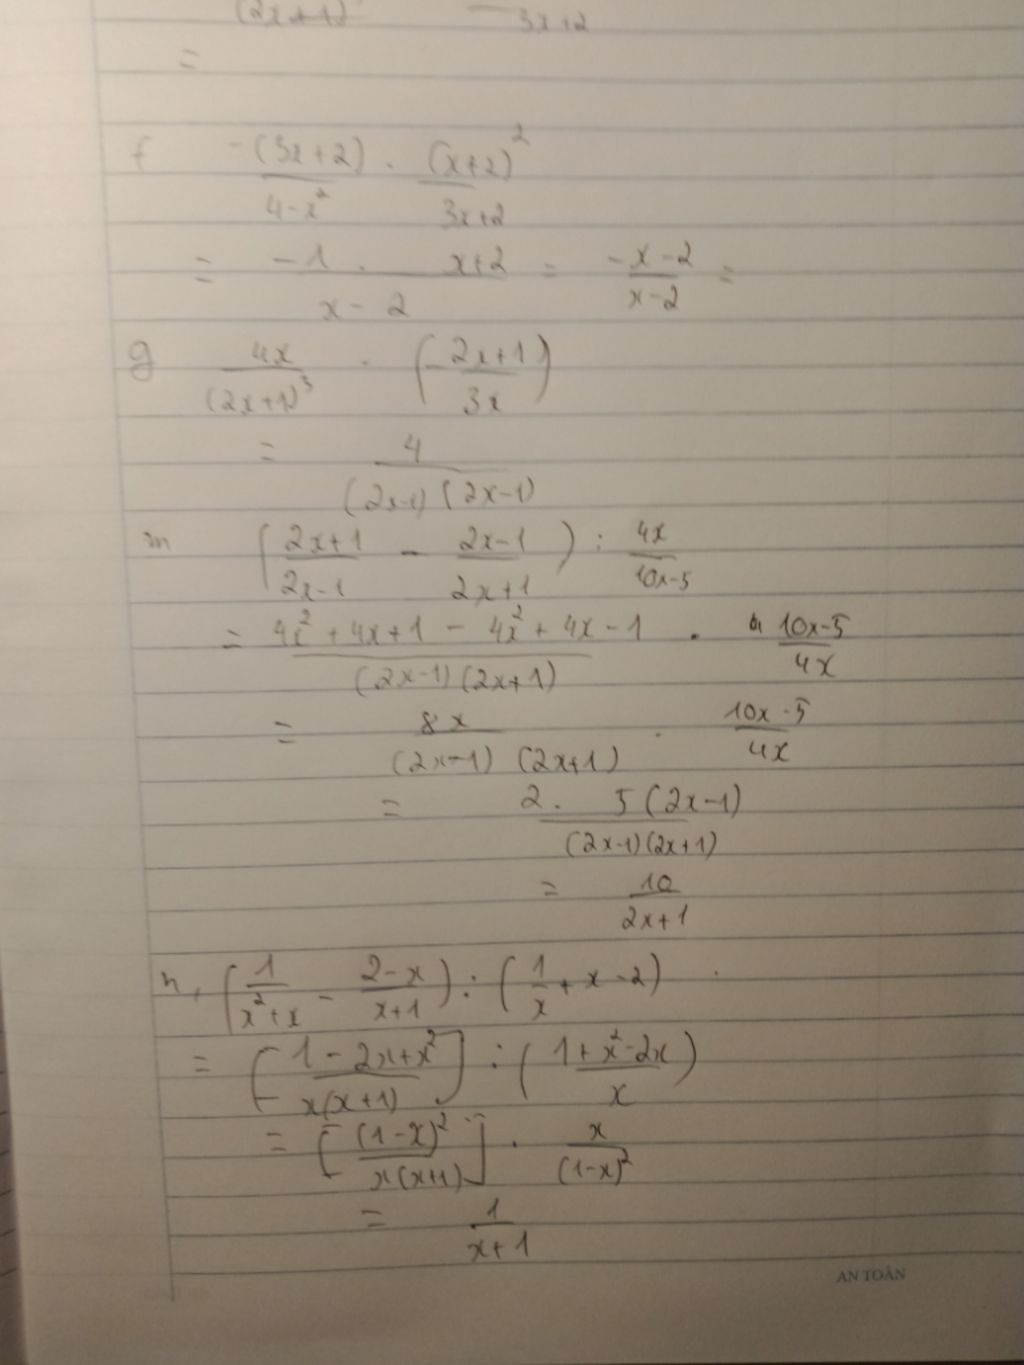 (2x+1) 3x+2
=
f -(3x+2)/(4-x²) . (x+2)²/(3x+2)
= -1/(x-2) . x+2 = (-x-2)/(x-2) =
g 4x/(2x+1)³ . (-(2x+1)/(3x))
= 4/((2x-1)(2x-1))
m ((2x+1)/(2x-1) - (2x-1)/(2x+1)) : 4x/(10x-5)
= (4x²+4x+1 - 4x²+4x-1)/((2x-1)(2x+1)) . (10x-5)/(4x)
= 8x/((2x-1)(2x+1)) . (10x-5)/(4x)
= (2.5(2x-1))/((2x-1)(2x+1))
= 10/(2x+1)
n, (1/(x²+x) - (2-x)/(x+1)) : (1/x + x - 2)
= [(1-2x+x²)/(x(x+1))] : ((1+x²-2x)/x)
= [(1-x)²/(x(x+1))] . x/(1-x)²
= 1/(x+1)
AN TOÀN